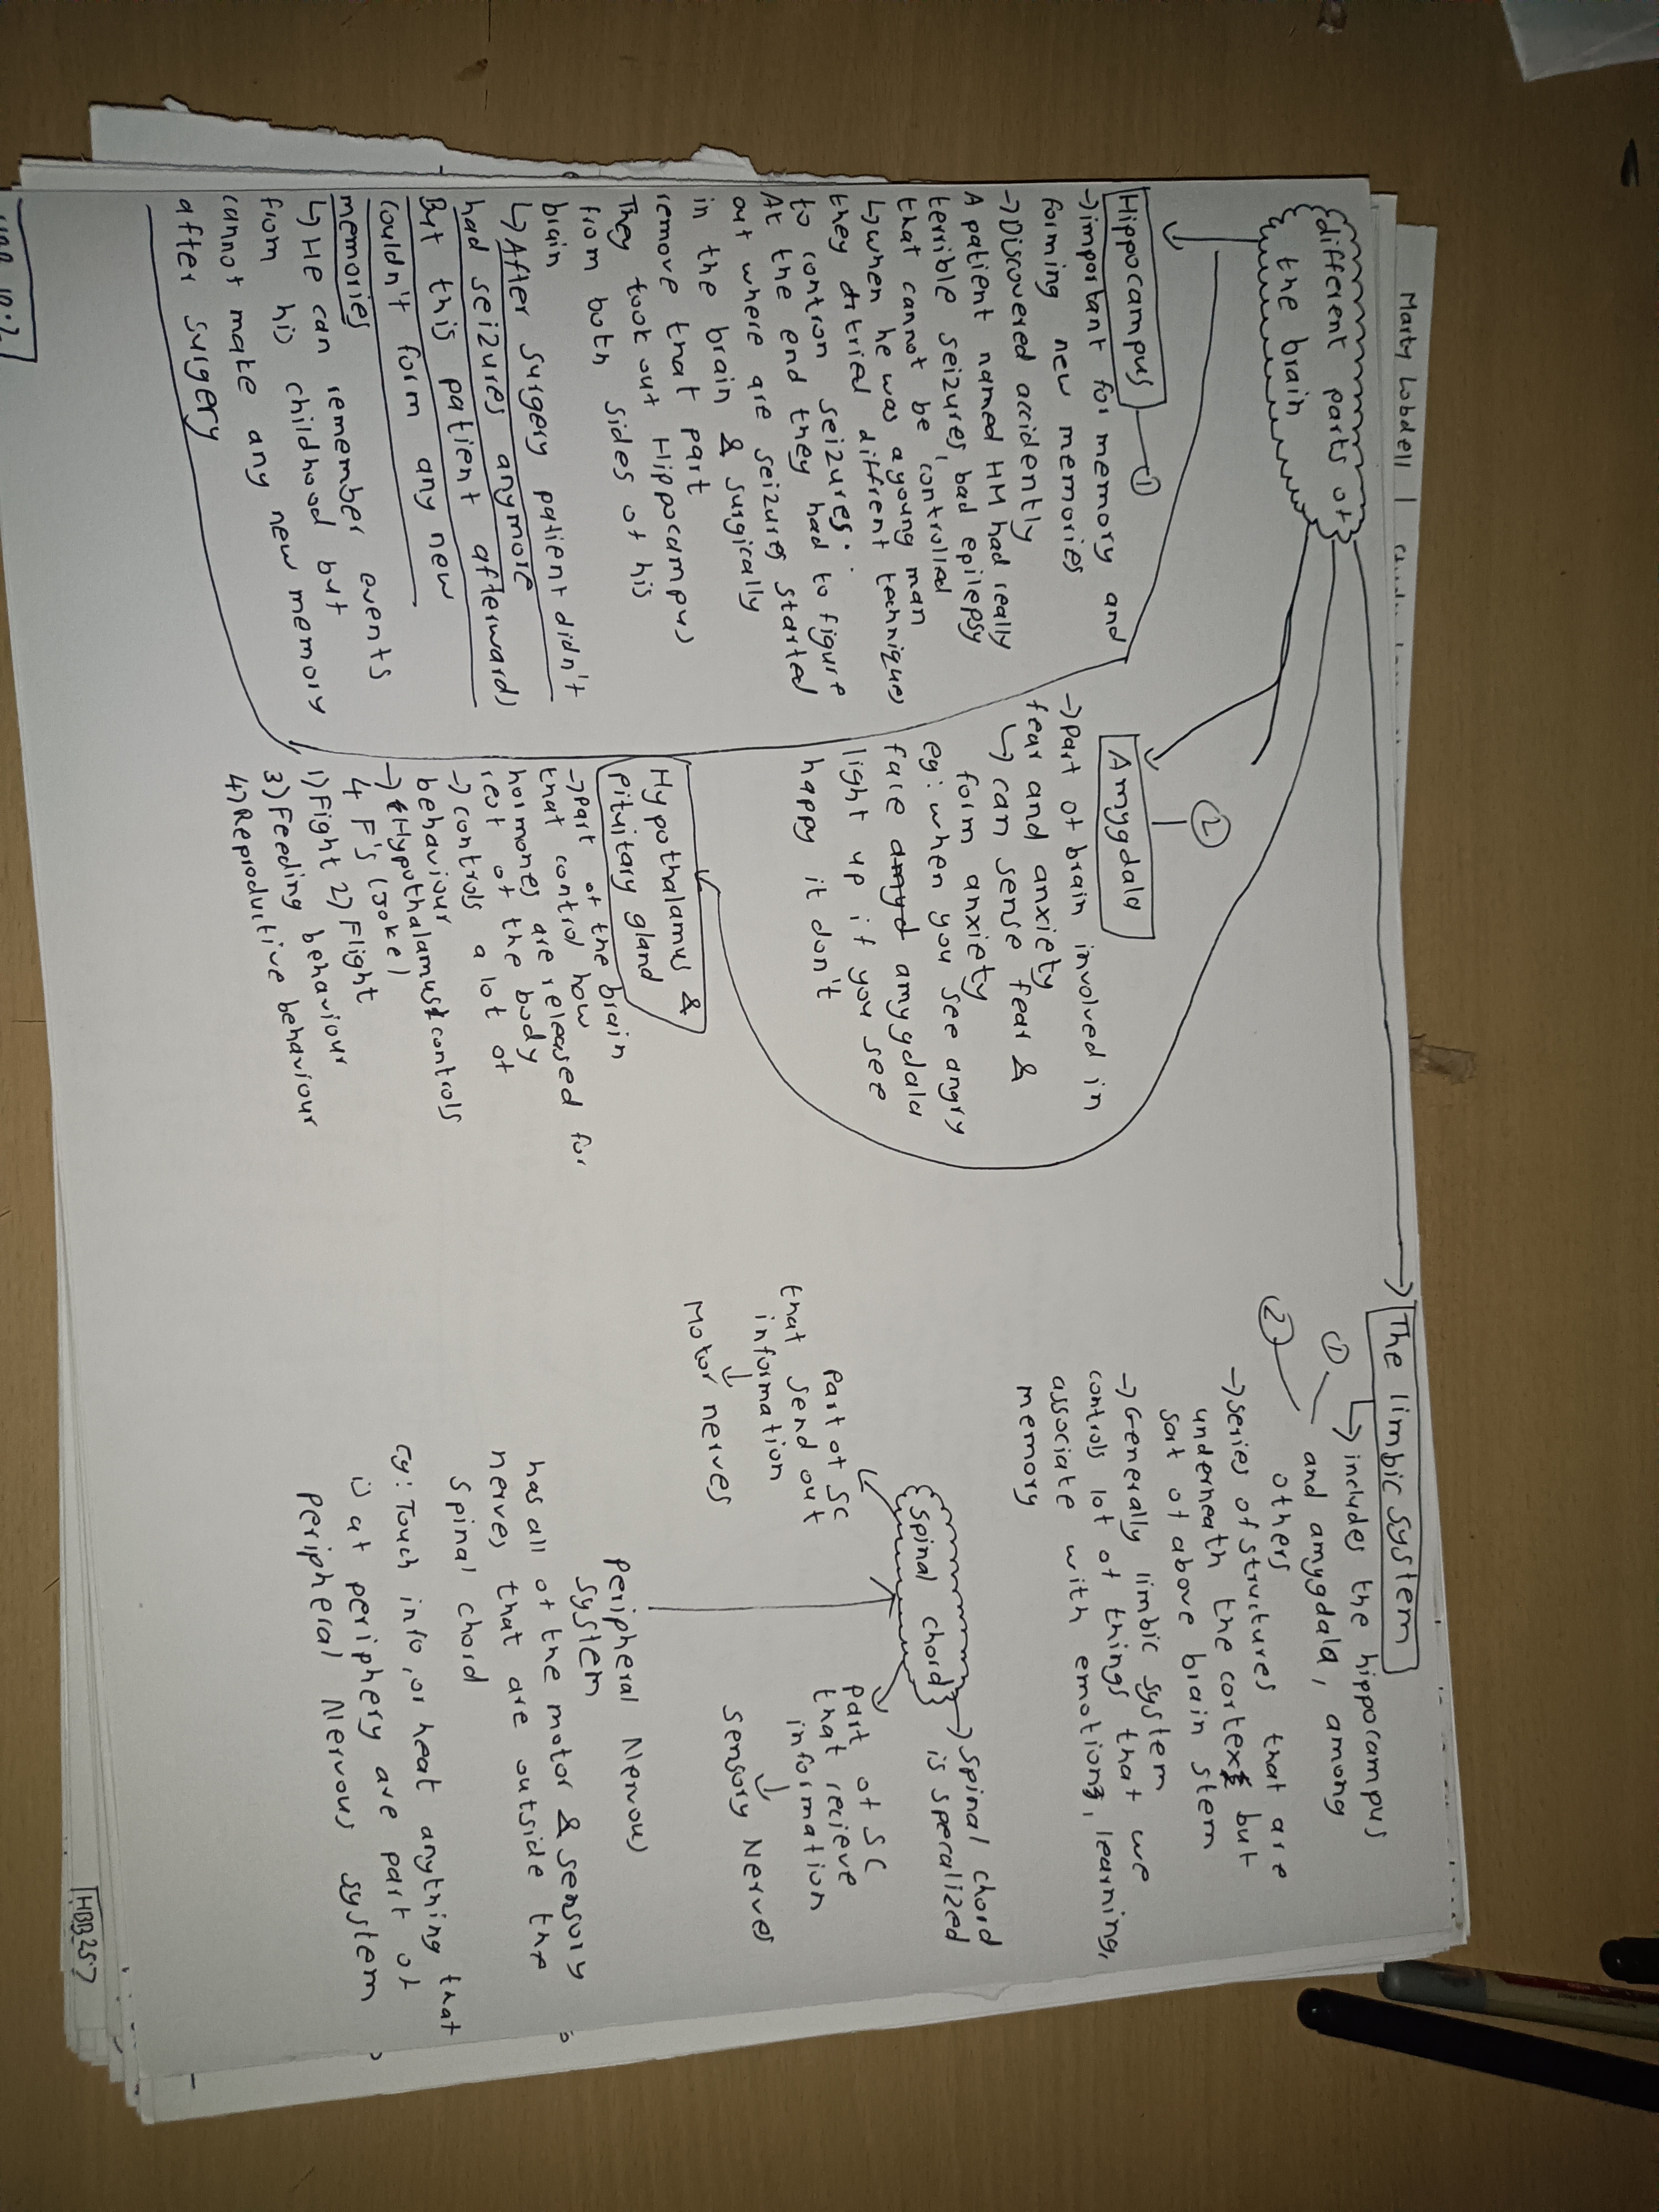 Marty Lobdell |
different parts of
the brain
Hippocampus
①
→important for memory and
forming new memories
→Discovered accidently
A patient named HM had really
terrible seizures, bad epilepsy
that cannot be controlled
↳when he was a young man
they dtried diffrent techniques
to contron seizures.
At the end they had to figure
out where are seizures started
in the brain & surgically
remove that part
They took out Hippocampus
from both sides of his
brain
↳After surgery patient didn't
had seizures anymore
But this patient afterwards
couldn't form any new
memories
↳He can remember events
from his childhood but
cannot make any new memory
after surgery
Amygdala
②
→Part of brain involved in
fear and anxiety
↳can sense fear &
form anxiety
eg: when you see angry
face amyd amygdala
light up if you see
happy it don't
Hypothalamus &
pituitary gland
→Part of the brain
that control how
hormones are released for
rest of the body
→controls a lot of
behaviour
→Hypothalamus controls
4 F's (joke)
1) Fight 2) Flight
3) Feeding behaviour
4) Reproductive behaviour
The limbic system
① ↳includes the hippocampus
② and amygdala, among
others
→series of structures that are
underneath the cortex but
sort of above brain stem
→Generally limbic system
controls lot of things that we
associate with emotions, learning,
memory
{spinal chord} → spinal chord
is speralized
part of SC
that send out
information
↓
Motor nerves
part of SC
that recieve
information
↓
sensory Nerves
Peripheral Nervous
system
has all of the motor & sensory
nerves that are outside the
spinal chord
eg: Touch info, or heat anything that
is at periphery are part of
peripheral Nervous system
HBB 25.7
10.2